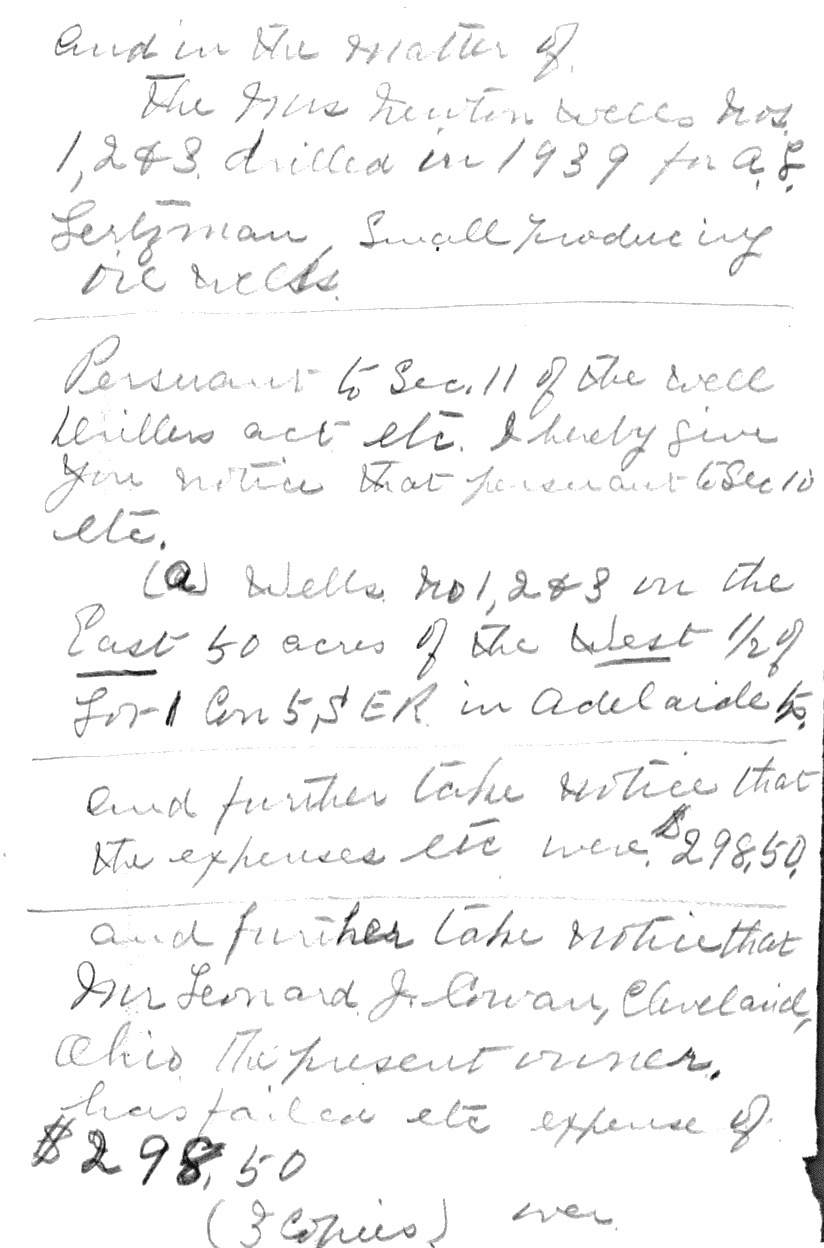 and in the matter of
The Mrs Newton Wells Nos.
1, 2 & 3. drilled in 1939 for A. S.
Sertzman, Small producing
oil wells.
Persuant to Sec. 11 of the Well
Drillers act etc. I hereby give
you notice that persuant to Sec 10
etc.
(a) Wells No 1, 2 & 3 on the
East 50 acres of the West 1/2 of
Lot 1 Con 5, S E R. in Adelaide tp.
and further take notice that
the expenses etc were $298.50.
and further take notice that
Mr Leonard J. Cowan, Cleveland,
Ohio The present owner.
has failed etc expense of
$298.50
(3 Copies) over